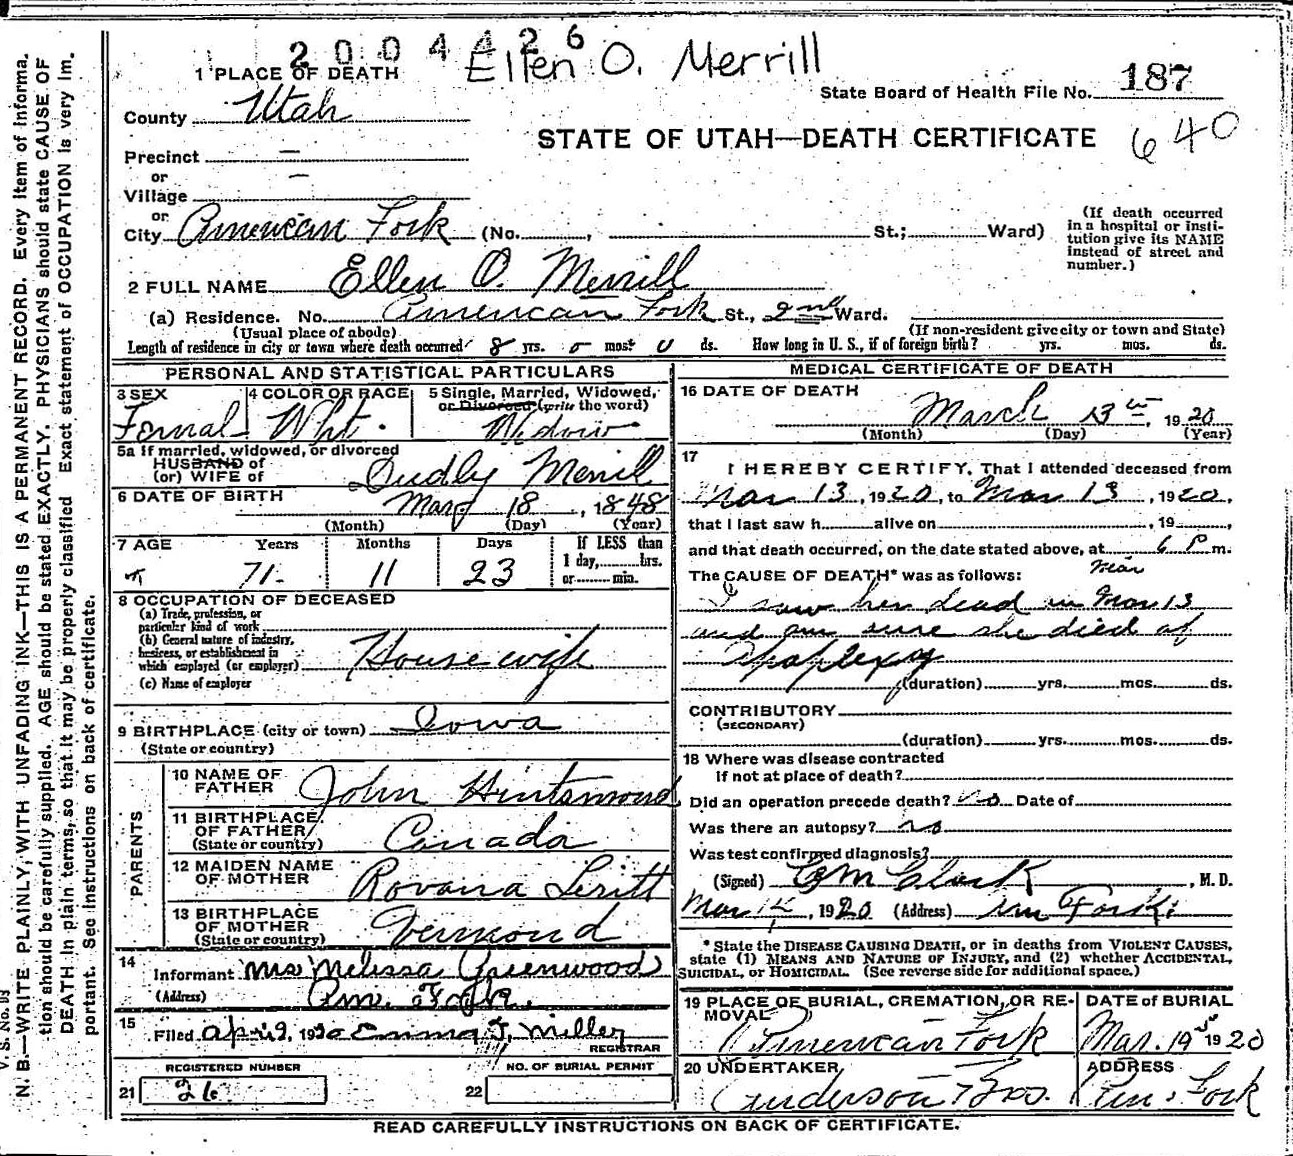 2004426
Ellen O. Merrill
1 PLACE OF DEATH
State Board of Health File No. 187
County Utah
STATE OF UTAH—DEATH CERTIFICATE
640
Precinct —
or
Village —
or
City American Fork (No. , St.; Ward)
(If death occurred in a hospital or insti-
tution give its NAME instead of street and number.)
2 FULL NAME Ellen O. Merrill
(a) Residence. No. American Fork St., 2nd Ward.
(Usual place of abode) (If non-resident give city or town and State)
Length of residence in city or town where death occurred 8 yrs. 0 mos. 0 ds. How long in U. S., if of foreign birth? yrs. mos. ds.
PERSONAL AND STATISTICAL PARTICULARS
3 SEX
Femal
4 COLOR OR RACE
Wht.
5 Single, Married, Widowed,
or Divorced (write the word)
Widow
5a If married, widowed, or divorced
HUSBAND of
(or) WIFE of Dudly Merril
6 DATE OF BIRTH Mar 18, 1848
(Month) (Day) (Year)
7 AGE Years Months Days If LESS than
1 day, hrs.
or min.
71 11 23
8 OCCUPATION OF DECEASED
(a) Trade, profession, or
particular kind of work
(b) General nature of industry,
business, or establishment in
which employed (or employer) Housewife
(c) Name of employer
9 BIRTHPLACE (city or town) Iowa
(State or country)
PARENTS
10 NAME OF
FATHER John Hintsmond
11 BIRTHPLACE
OF FATHER
(State or country) Canada
12 MAIDEN NAME
OF MOTHER Rovana Leritt
13 BIRTHPLACE
OF MOTHER
(State or country) Vermond
14
Informant Mrs Melissa Greenwood
(Address) Am. Fork.
15
Filed apr 12, 1920 Emma T. Miller
REGISTRAR
REGISTERED NUMBER
21 26
NO. OF BURIAL PERMIT
22
MEDICAL CERTIFICATE OF DEATH
16 DATE OF DEATH
March 13th, 1920
(Month) (Day) (Year)
17
I HEREBY CERTIFY, That I attended deceased from
Mar 13, 1920, to Mar 13, 1920,
that I last saw h alive on , 19 ,
and that death occurred, on the date stated above, at 6 P m.
The CAUSE OF DEATH* was as follows:
I saw her dead in Mar 13
and am sure she died of
Apoplexy
(duration) yrs. mos. ds.
CONTRIBUTORY
(SECONDARY)
(duration) yrs. mos. ds.
18 Where was disease contracted
if not at place of death?
Did an operation precede death? no Date of
Was there an autopsy? no
Was test confirmed diagnosis?
(Signed) C M Clark, M. D.
Mar 15, 1920 (Address) Am Fork
* State the DISEASE CAUSING DEATH, or in deaths from VIOLENT CAUSES,
state (1) MEANS AND NATURE OF INJURY, and (2) whether ACCIDENTAL,
SUICIDAL, or HOMICIDAL. (See reverse side for additional space.)
19 PLACE OF BURIAL, CREMATION, OR RE-
MOVAL
American Fork
DATE OF BURIAL
Mar. 19 1920
20 UNDERTAKER
Anderson Bros.
ADDRESS
Am. Fork
READ CAREFULLY INSTRUCTIONS ON BACK OF CERTIFICATE.
V. S. No.
N. B.—WRITE PLAINLY, WITH UNFADING INK—THIS IS A PERMANENT RECORD. Every item of informa-
tion should be carefully supplied. AGE should be stated EXACTLY. PHYSICIANS should state CAUSE OF
DEATH in plain terms, so that it may be properly classified. Exact statement of OCCUPATION is very im-
portant. See instructions on back of certificate.